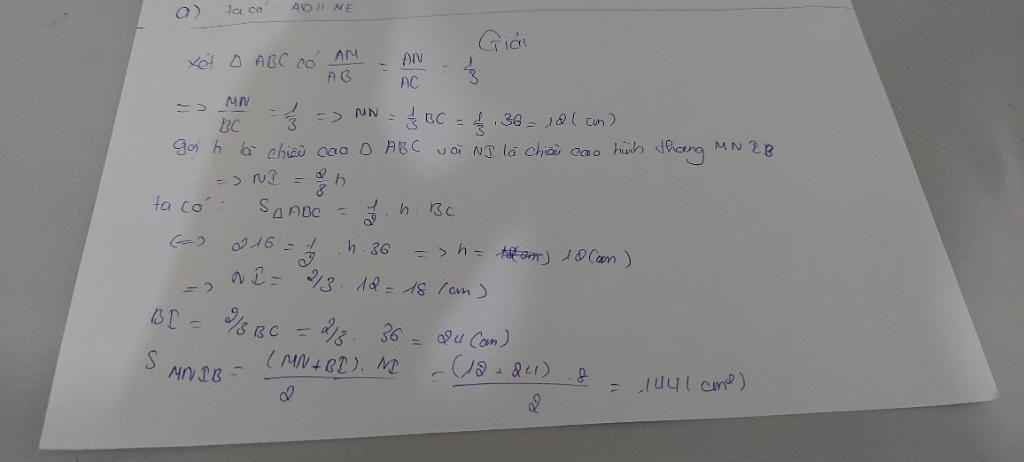 a) ta có: AD // ME
Giải
Xét Δ ABC có AM/AB = AN/AC = 1/3
=> MN/BC = 1/3 => MN = 1/3 BC = 1/3 . 36 = 12 (cm)
Gọi h là chiều cao Δ ABC và NI là chiều cao hình thang MNIB
=> NI = 2/3 h
ta có: SΔABC = 1/2 . h . BC
<=> 216 = 1/2 . h . 36 => h = 12 (cm)
=> NI = 2/3 . 12 = 18 (cm)
BI = 2/3 BC = 2/3 . 36 = 24 (cm)
S MNIB = (MN + BI) . NI / 2 = (12 + 24) . 8 / 2 = 144 (cm²)